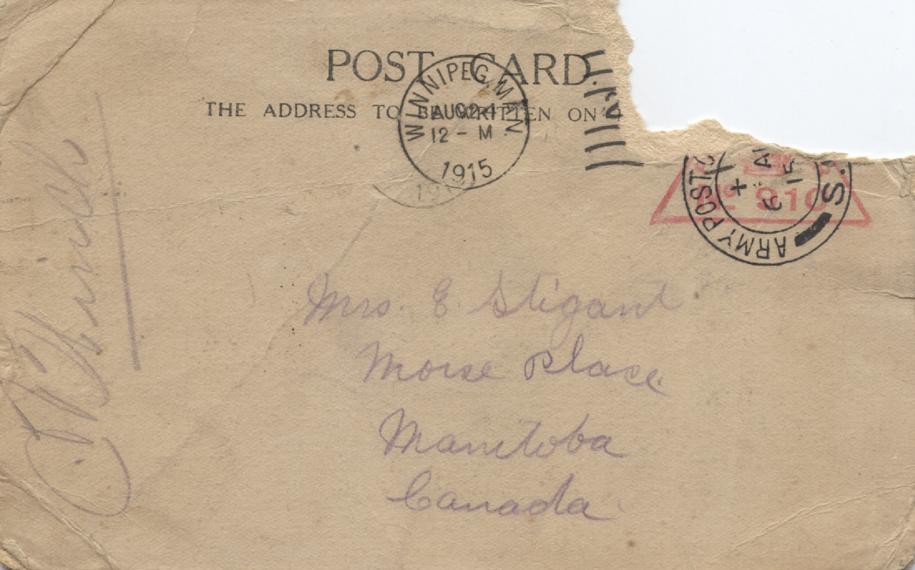 POST CARD
THE ADDRESS TO BE WRITTEN ON
WINNIPEG, MAN
AUG 24
12 - M
1915
ARMY POST
S.
910
Mrs. E Stigant
Morse Place
Manitoba
Canada